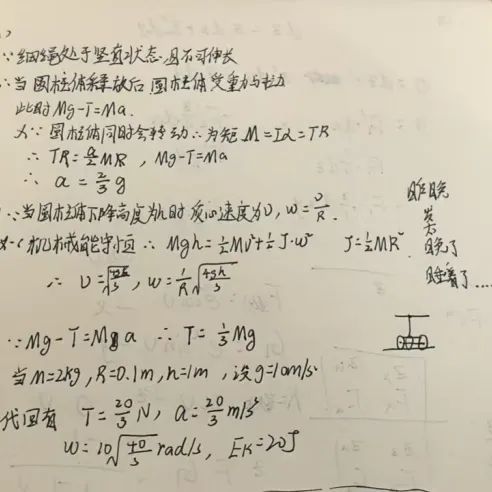 ∵细绳处于竖直状态且不可伸长
∴当圆柱体释放后圆柱体受重力与拉力
此时Mg-T=Ma.
又∵圆柱体同时会转动∴力矩M=Iα=TR
∴TR=\frac{a}{2}MR,Mg-T=Ma
∴a=\frac{2}{3}g
∵当圆柱体下降高度为h时质心速度为υ,ω=\frac{υ}{R}.
机械能守恒∴Mgh=½Mυ²+½J·ω² J=½MR².
∴υ=\sqrt{\frac{4gh}{3}},ω=\frac{1}{R}\sqrt{\frac{4gh}{3}}
∵Mg-T=Ma ∴T=\frac{1}{3}Mg
当M=2kg,R=0.1m,h=1m,设g=10m/s²
代回有 T=\frac{20}{3}N,a=\frac{20}{3}m/s²
ω=10\sqrt{\frac{40}{3}}rad/s,E_K=20J
昨晚
太
晚了
睡着了....